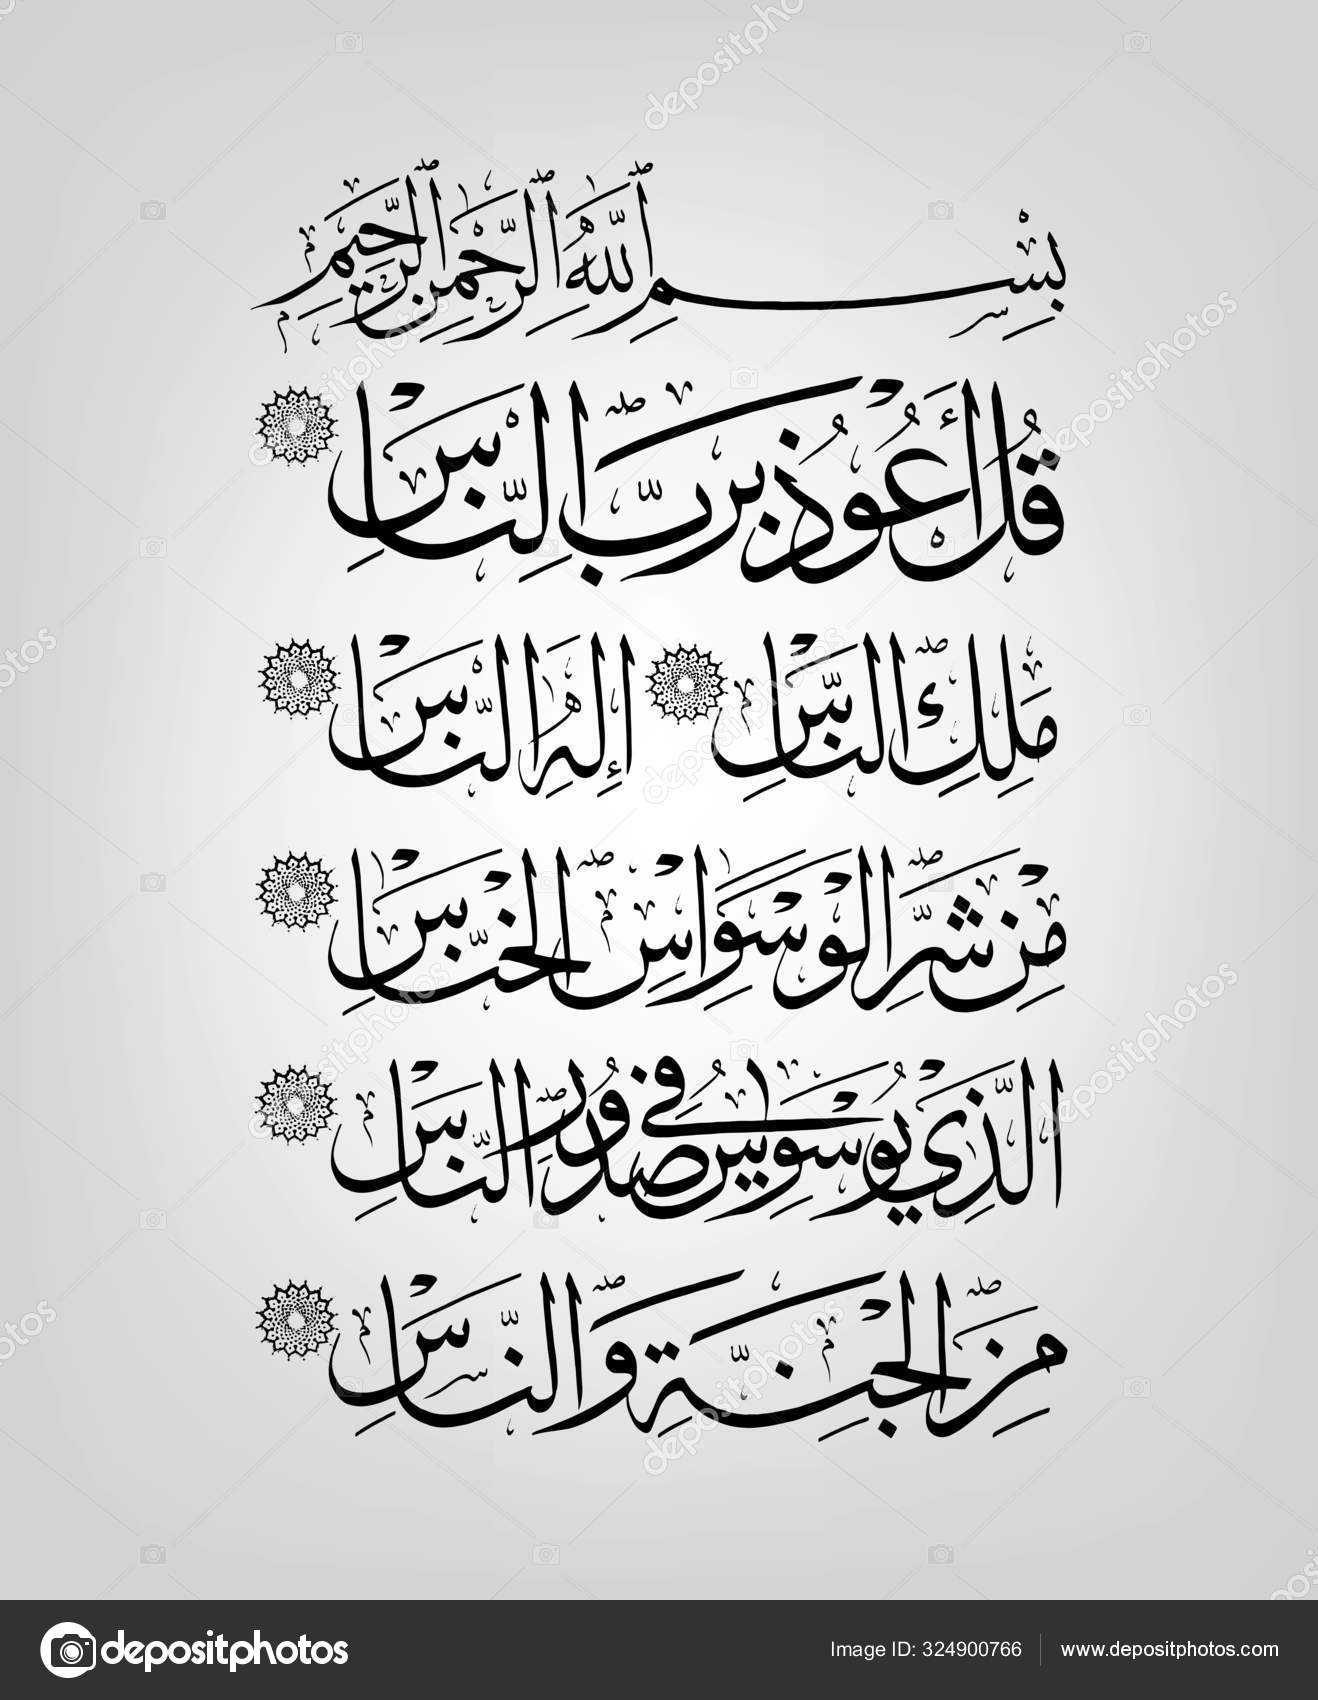 بِسْمِ ٱللَّهِ ٱلرَّحْمَٰنِ ٱلرَّحِيمِ
قُلْ أَعُوذُ بِرَبِّ النَّاسِ
مَلِكِ النَّاسِ إِلَٰهِ النَّاسِ
مِنْ شَرِّ الْوَسْوَاسِ الْخَنَّاسِ
الَّذِي يُوَسْوِسُ فِي صُدُورِ النَّاسِ
مِنَ الْجِنَّةِ وَالنَّاسِ
depositphotos Image ID: 324900766 www.depositphotos.com